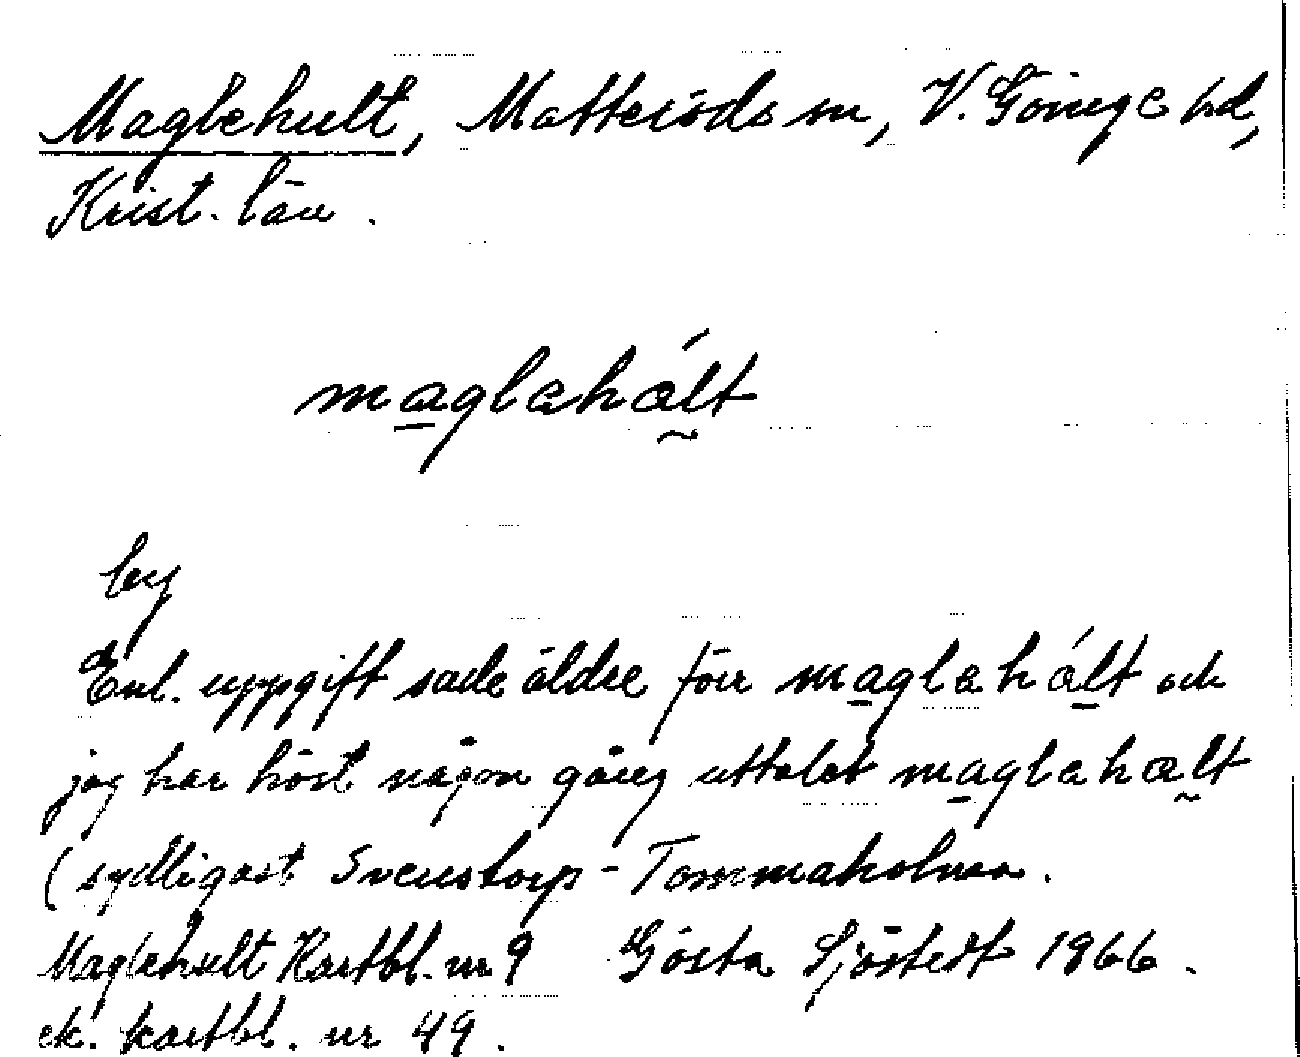 Maglehult, Matteröds sn, V. Göinge hd,
Krist. län.
maglahált
by
Enl. uppgift sade äldre förr maglahált och
jag har hört någon gång uttalet maglahalt
(sydligast Svenstorp - Tommaholma.
Maglehult Kartbl. nr 9 Gösta Sjöstedt 1966.
ek. kartbl. nr 49.